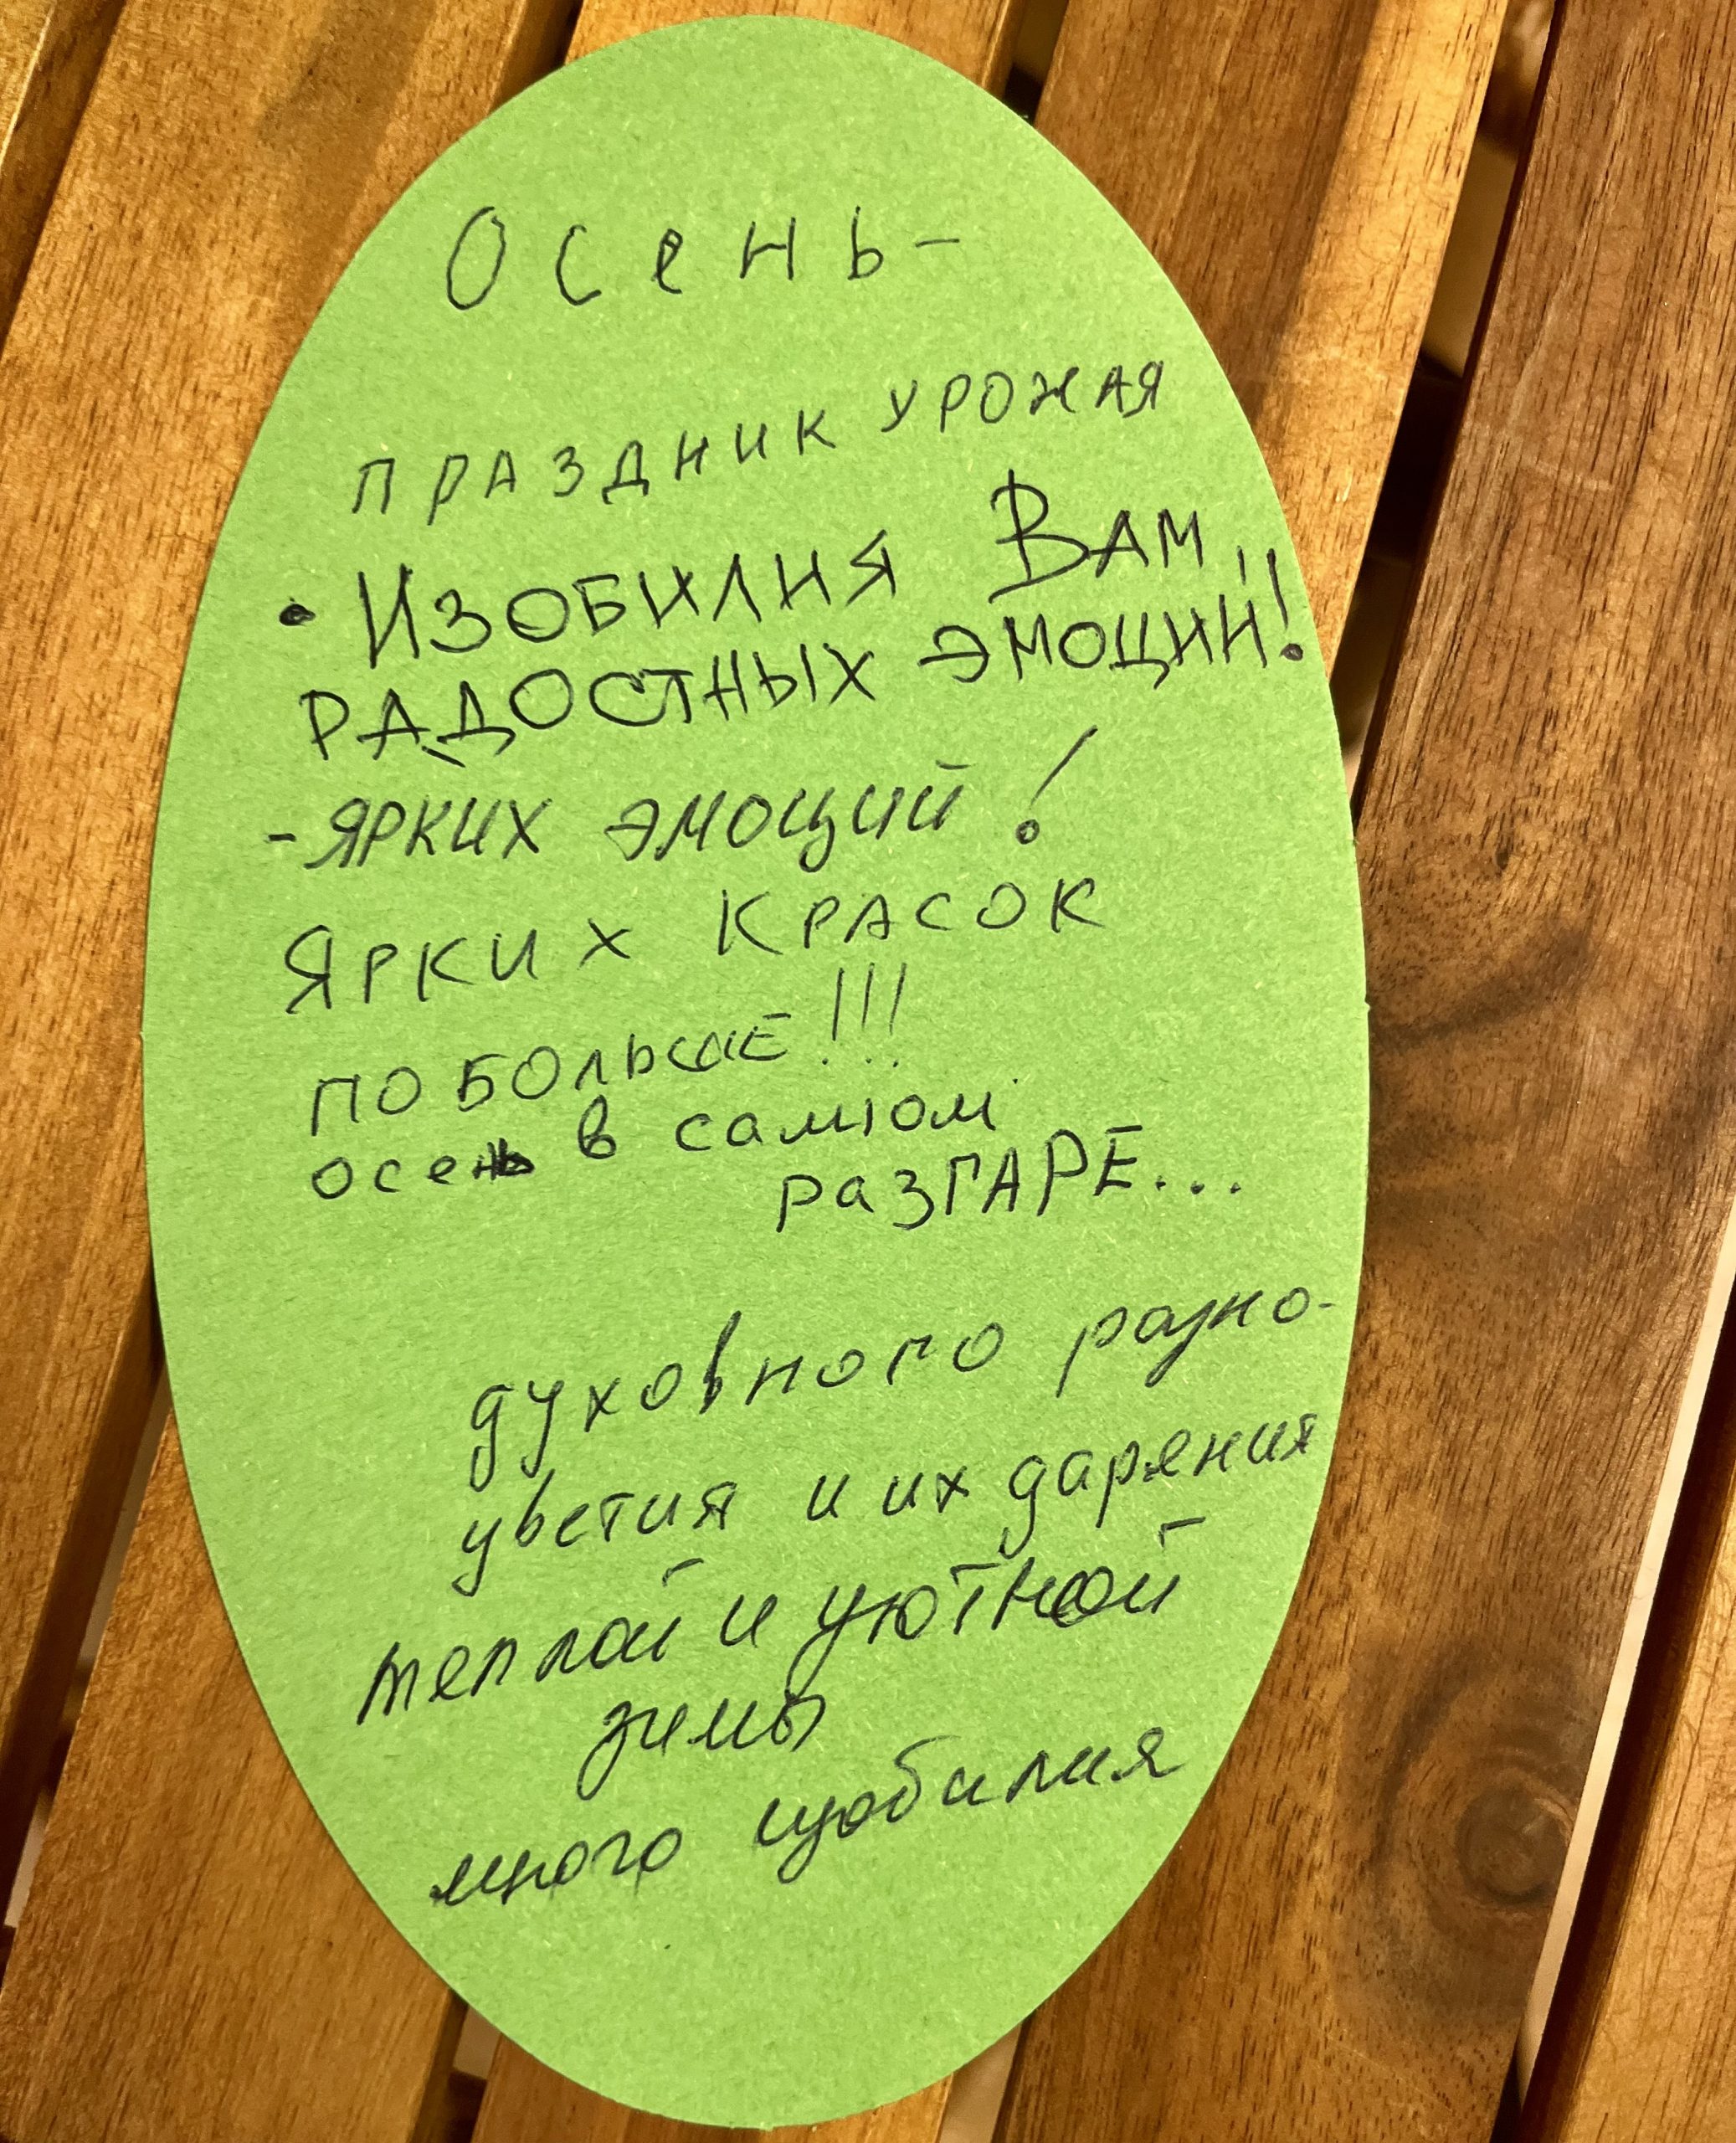 Осень-
праздник урожая
• Изобилия Вам,
радостных эмоций!
- ярких эмоций!
Ярких красок
побольше!!!
осень в самом
разгаре...
духовного разно-
цветия и их даряния
теплой и уютной
зимы
много изобилия